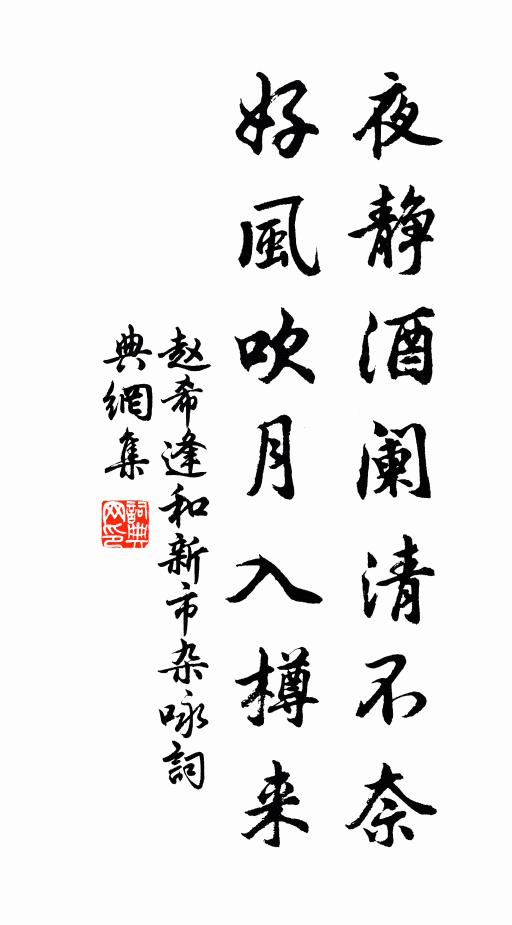 夜静酒阑清不奈
好風吹月入樽来
赵希逢和新市杂咏詞
典網集
詞典网印